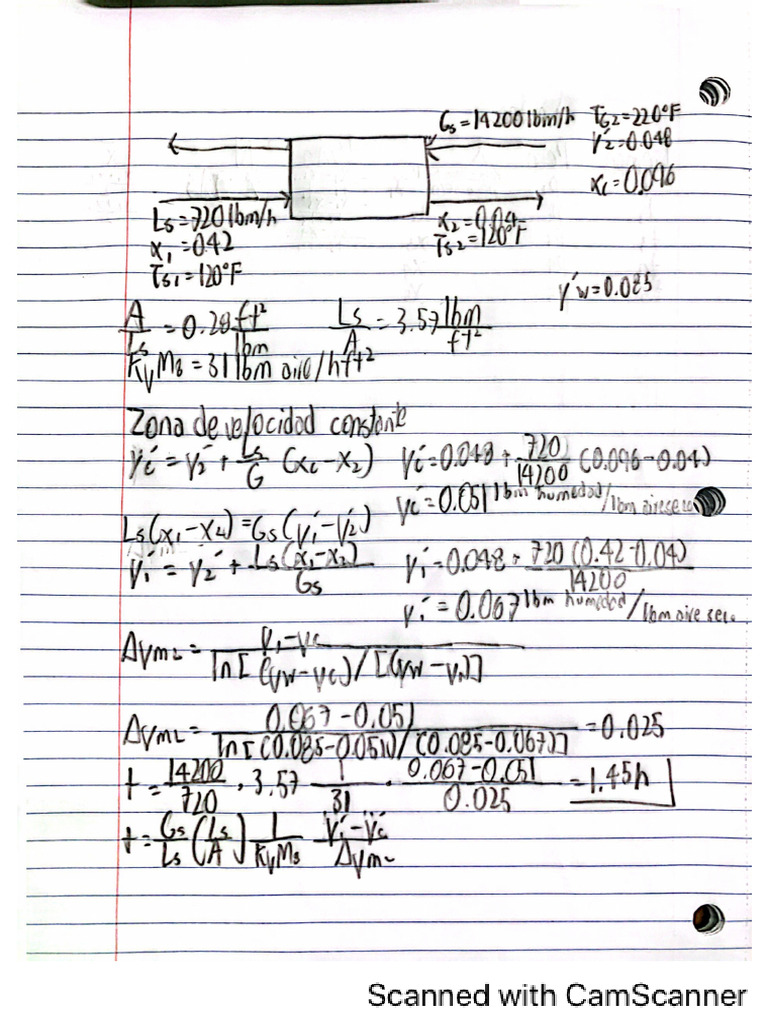 Gs=14200 lbm/h TG2=220°F
Y'2=0.048
xc=0.096
Ls=720 lbm/h x2=0.04
x1=042 Ts2=120°F
Ts1=120°F
y'w=0.085
A/Ls=0.28 ft²/lbm Ls/A=3.57 lbm/ft²
KyMB=31 lbm aire/hft²
Zona de velocidad constante
yc'=y2'+Ls/G (xc-x2) yc'=0.048+720/14200 (0.096-0.04)
yc'=0.051 lbm humedad/lbm aire seco
Ls(x1-x2)=Gs(y1'-y2')
y1'=y2'+Ls(x1-x2)/Gs y1'=0.048+720(0.42-0.04)/14200
y1'=0.067 lbm humedad/lbm aire seco
ΔyML=y1-yc/ln[(yw-yc)/[(yw-y1)]
ΔyML=0.067-0.051/ln[(0.085-0.051)/(0.085-0.067)]=0.025
t=14200/720·3.57·1/31·0.067-0.051/0.025=1.45h
t=Gs/Ls(Ls/A)1/KyMB y1'-yc'/ΔyML
Scanned with CamScanner